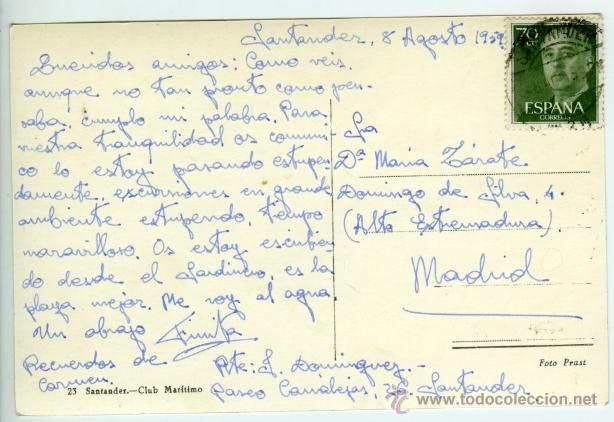 Santander, 8 Agosto 1959
Queridos amigos: Como veis,
aunque no tan pronto como pen-
saba, cumplo mi palabra. Para
vuestra tranquilidad os comuni-
co lo estoy pasando estupen-
damente, excursiones en grande
ambiente estupendo, tiempo
maravilloso. Os estoy escribien-
do desde el Sardinero, es la
playa mejor. Me voy al agua.
Un abrazo Finita
Recuerdos de
Carmen
70
CTS
ESPAÑA
CORREOS
Sra
Dª María Zárate
Domingo de Silva, 4.
(Alto Extremadura)
Madrid
Foto Prast
Rte: J. Dominguez.-
Paseo Canalejas, Santander
23 Santander.—Club Marítimo
www.todocoleccion.net